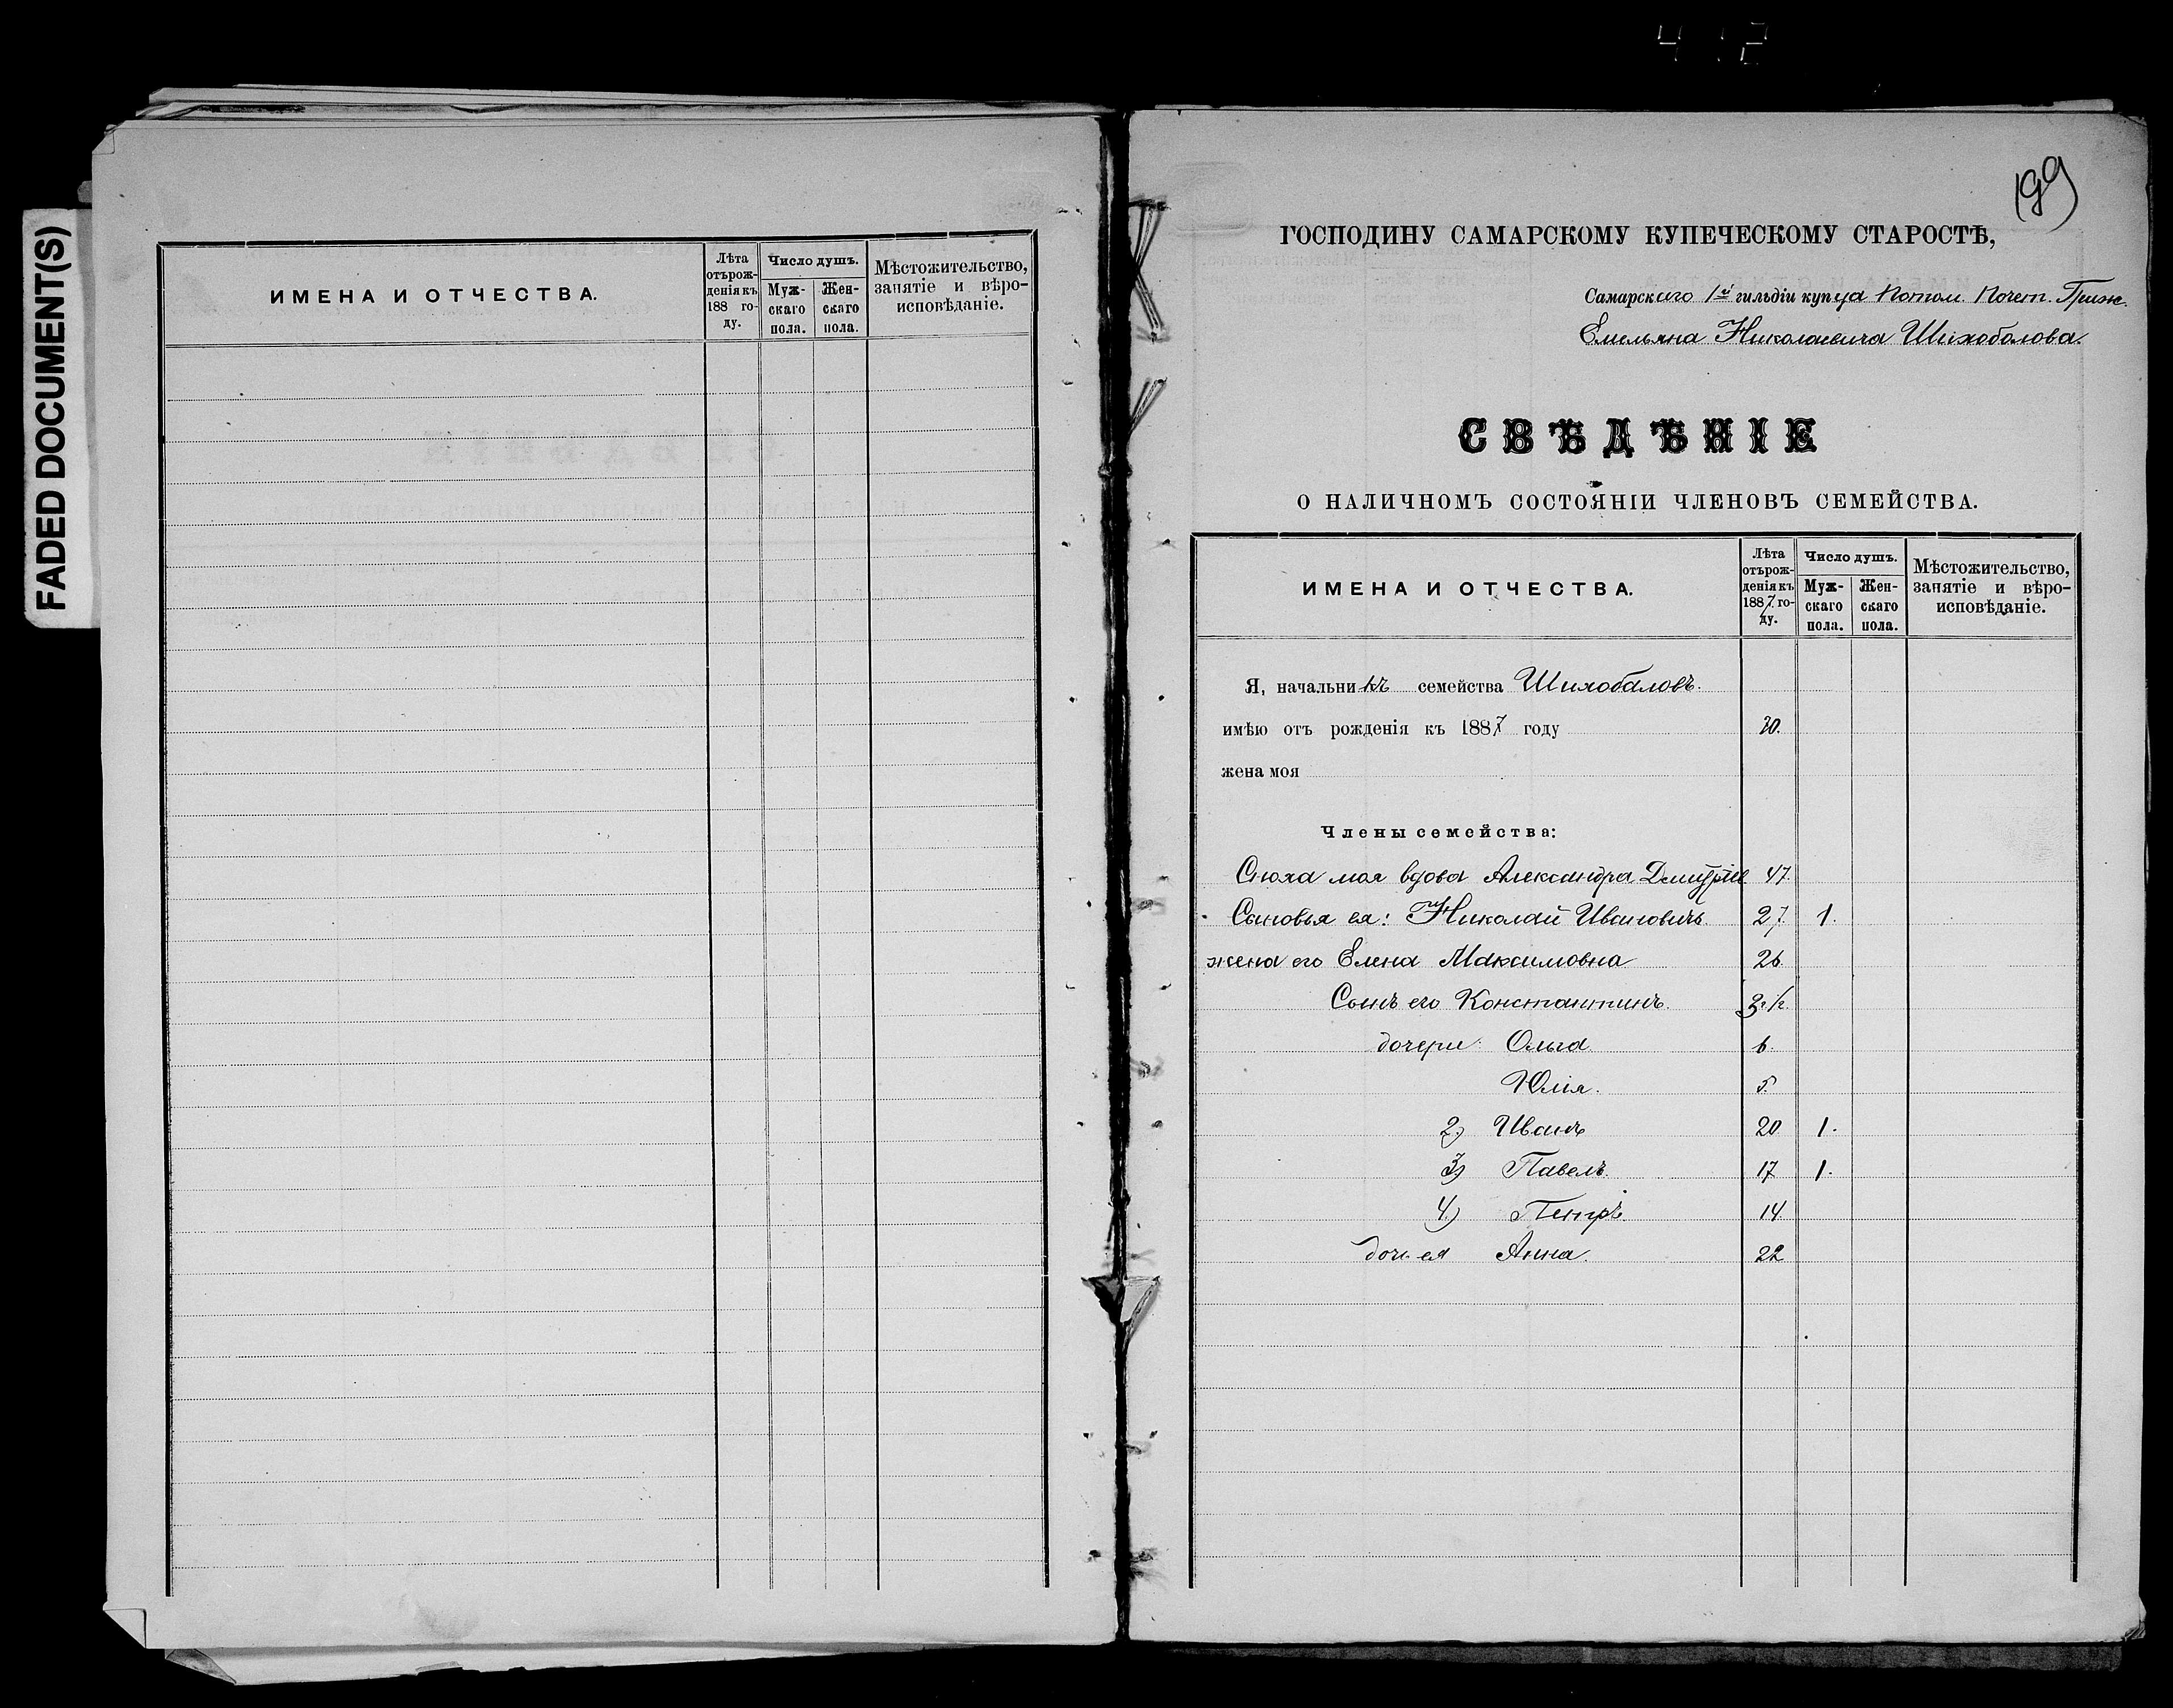 412
FADED DOCUMENT(S)
ИМЕНА И ОТЧЕСТВА.
Лѣта отърожденiя къ 188 году.
Число душъ.
Мужскаго пола.
Женскаго пола.
Мѣстожительство, занятiе и вѣроисповѣданiе.
199
ГОСПОДИНУ САМАРСКОМУ КУПЕЧЕСКОМУ СТАРОСТѢ,
Самарскаго 1й гильдiи купца Потом. Почет. Граж.
Емельяна Николаевича Шихобалова.
СВѢДѢНIЕ
О НАЛИЧНОМЪ СОСТОЯНIИ ЧЛЕНОВЪ СЕМЕЙСТВА.
ИМЕНА И ОТЧЕСТВА.
Лѣта отърожденiя къ 1887 году.
Число душъ.
Мужскаго пола.
Женскаго пола.
Мѣстожительство, занятiе и вѣроисповѣданiе.
Я, начальникъ семейства Шихобаловъ.
имѣю отъ рожденiя къ 1887 году 30.
жена моя
Члены семейства:
Сноха моя вдова Александра Дмитрiев 47.
Сыновья ея: Николай Ивановичъ. 27. 1.
жена его Елена Максимовна 26.
Сынъ его Константинъ.
дочери: Ольга 6.
Юлiя. 5.
2) Иванъ 20 1.
3) Павелъ. 17 1.
4) Петръ. 14.
дочь ея Анна. 22